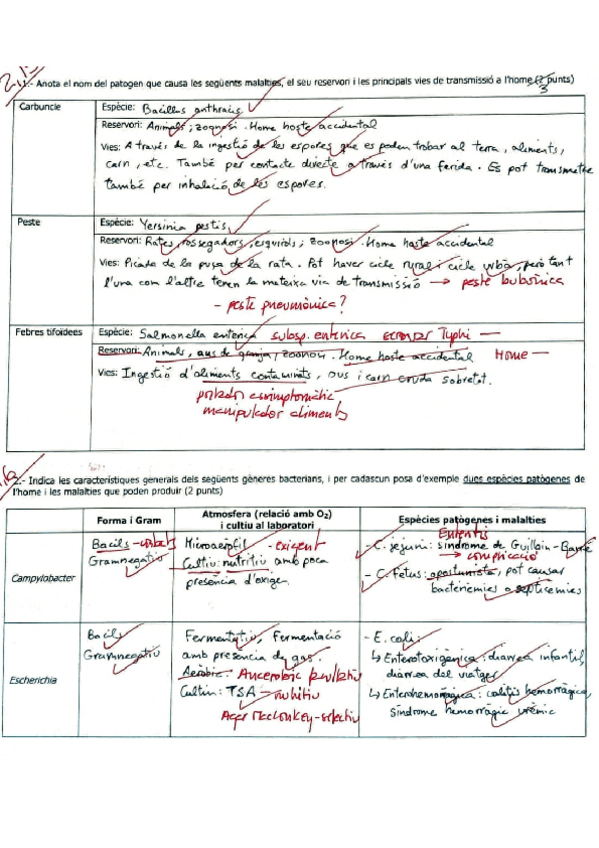 1.- Anota el nom del patogen que causa les següents malalties, el seu reservori i les principals vies de transmissió a l'home (2 punts)
3
Carbuncle
Espècie: Bacillus anthracis
Reservori: Animals; zoonosi. Home hoste accidental
Vies: A través de la ingestió de les espores que es poden trobar al terra, aliments,
carn, etc. També per contacte directe a través d'una ferida. Es pot transmetre
també per inhalació de les espores.
Peste
Espècie: Yersinia pestis
Reservori: Rates, rossegadors, esquirols; zoonosi. Home hoste accidental
Vies: Picada de la puça de la rata. Pot haver cicle rural i cicle urbà, però tant
l'una com l'altre tenen la mateixa via de transmissió → peste bubònica
- peste pneumònica?
Febres tifoidees
Espècie: Salmonella enterica subsp. enterica Typhi
Reservori: Animals, aus de granja; zoonosi. Home hoste accidental Home
Vies: Ingestió d'aliments contaminats, ous i carn cruda sobretot.
portador asimptomàtic
manipulador aliments
2.- Indica les característiques generals dels següents gèneres bacterians, i per cadascun posa d'exemple dues espècies patògenes de
l'home i les malalties que poden produir (2 punts)
Forma i Gram
Atmosfera (relació amb O2)
i cultiu al laboratori
Espècies patògenes i malalties
Campylobacter
Bacils
Gramnegatiu
Microaeròfil - exigent
Cultiu: nutritiu amb poca
presència d'oxigen.
Enteritis
- C. jejuni: síndrome de Guillain-Barré
→ complicació
- C. fetus: oportunista, pot causar
bacterièmies o septicèmies
Escherichia
Bacils
Gramnegatiu
Fermentatiu, Fermentació
amb presència de gas.
Aerobic. Anaerobic facultatiu
Cultiu: TSA - nutritiu
Agar McConkey - selectiu
- E. coli:
↳ Enterotoxigènica: diarrea infantil,
diarrea del viatger
↳ Enterohemorràgica: colitis hemorràgica,
síndrome hemorràgic urèmic